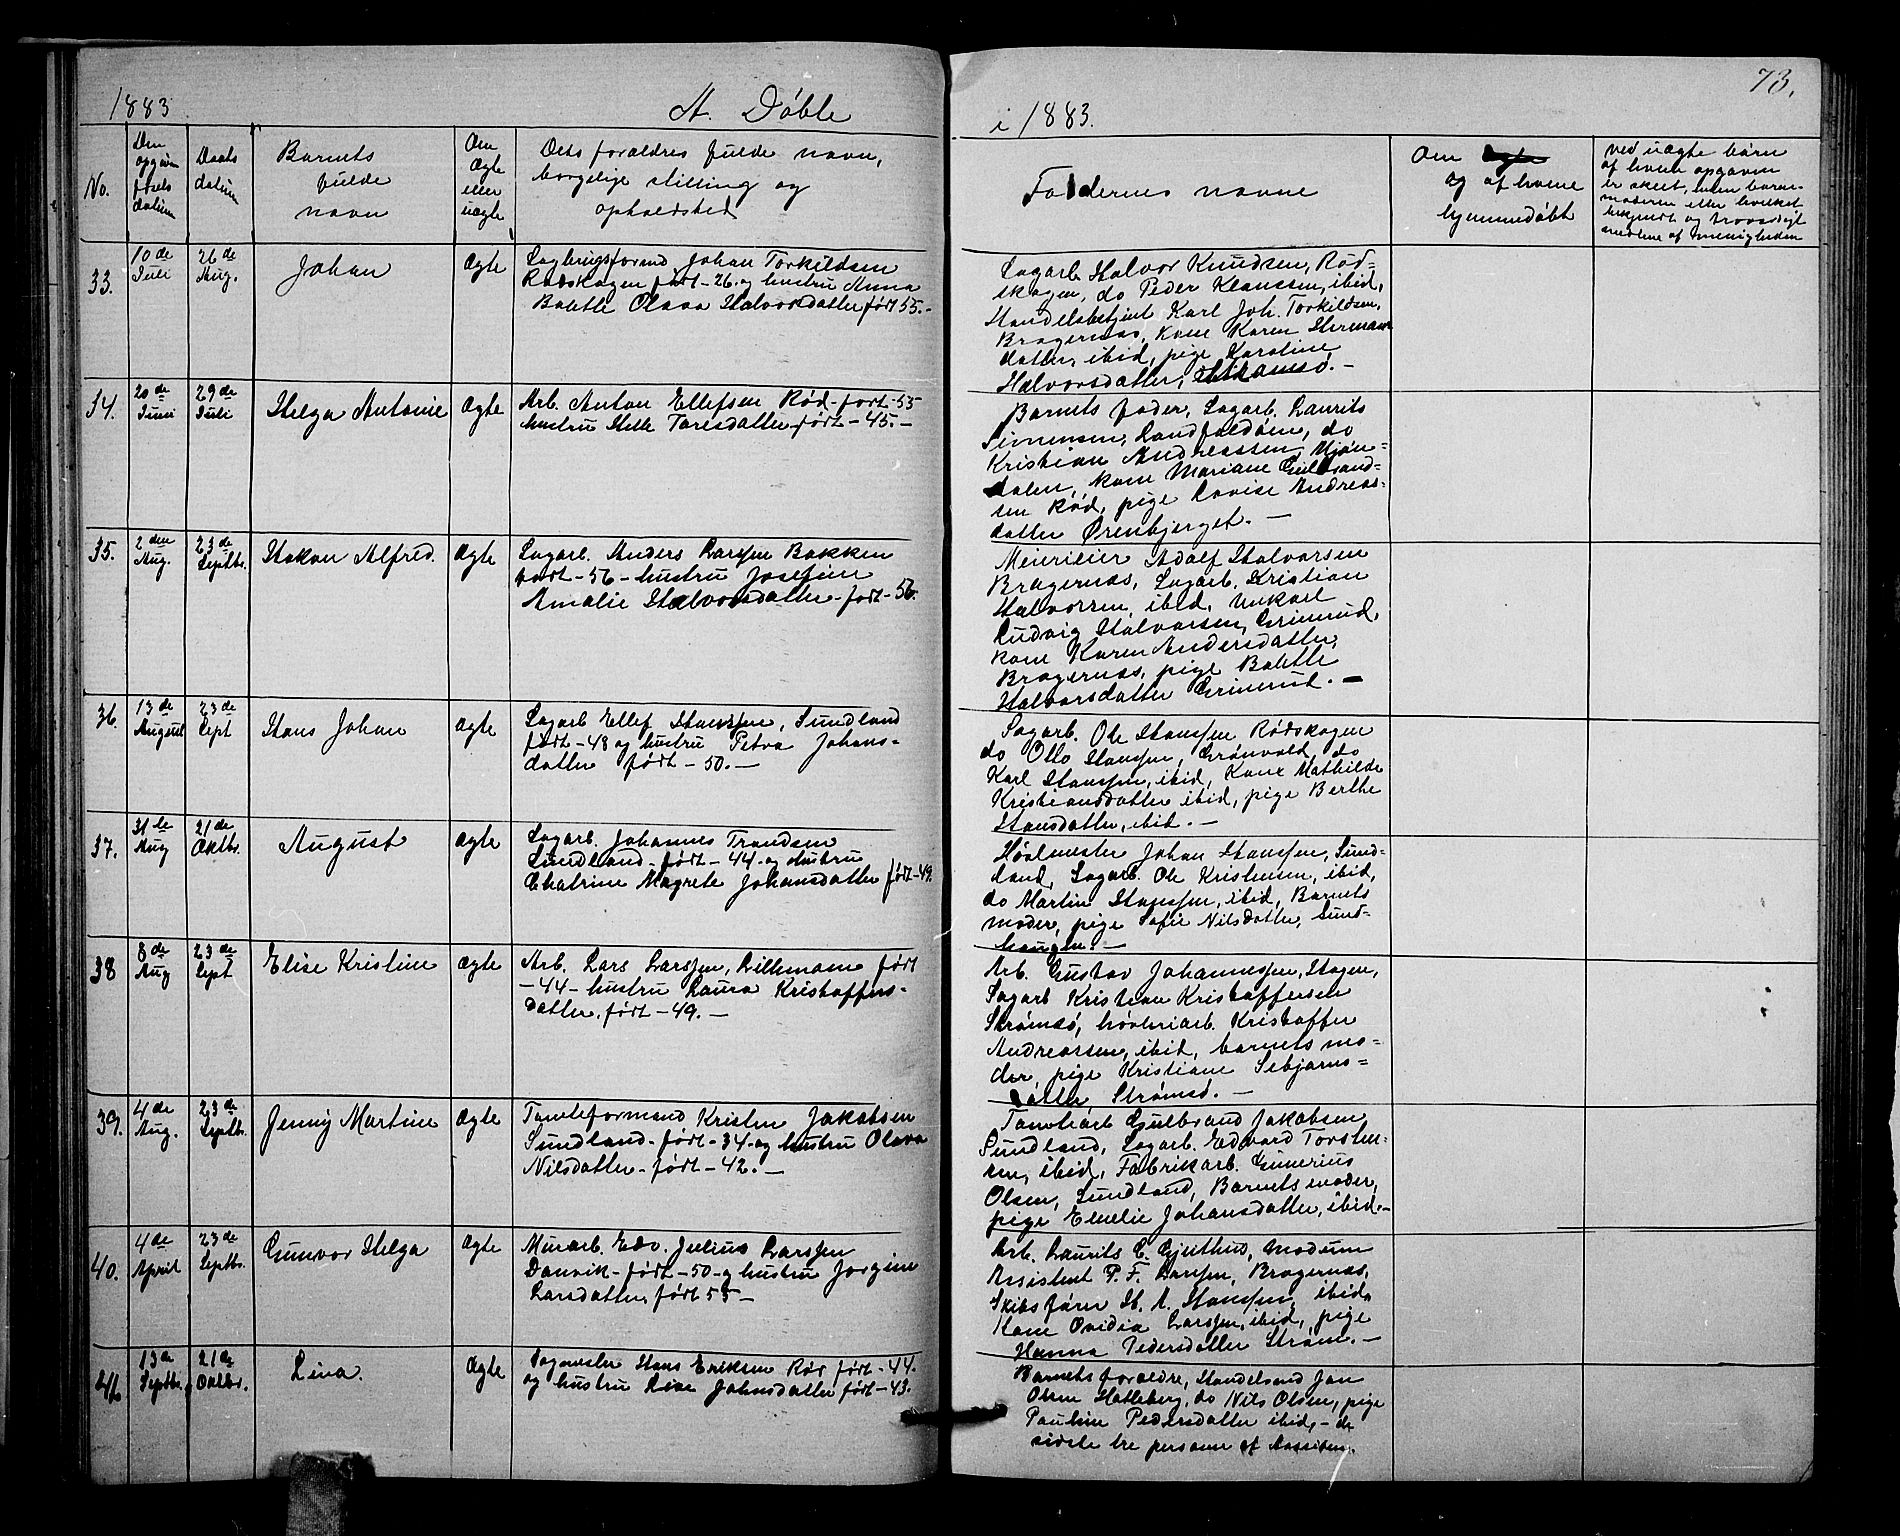 73.
1883
A. Döble
i 1883.
No.
Den
opgivne
fösels
datum
Daabs
datum
Barnets
fulde
navn
Om
Ægte
eller
uægte
Dets forældres fulde navn,
borgelige stilling og
opholdsted
Faddernes navne
Om Ægte
og af hvem
hjemmedöbt
Ved uægte börn
af hvem opgaven
er skeet, om barne-
moderen eller hvilket
bekjendt og troværdigt
medlem af menigheden
33.
10 de
Juli
26 de
Aug.
Johan
Ægte
Sagbrugsformd Johan Torkildsen
Rødskogen født - 26. og hustru Anna
Bolette Olava Halvorsdatter født 55. -
Sagarb. Halvor Knudsen, Rød-
skogen, do Peder Klaussen, ibid,
Handelsbetjent Karl Joh. Torkildsen,
Bragernæs, Kone Karen Herman
datter, ibid, pige Karoline
Halvorsdatter, Strømsö. -
34.
20 de
Juni
29 de
Juli
Helga Antonie
Ægte
Arb. Anton Ellefsen Rød - født - 55
hustru Helle Taresdatter født - 45. -
Barnets fader, Sagarb. Laurits
Simensen, Landfaldöen, do
Kristian Andreassen, Mjøn-
dalen, kone Mariane Gulbrand-
sen Rød, pige Lovise Andreas-
datter Ørenbjerget. -
35.
2 den
Aug.
23 de
Septbr.
Hakon Alfred.
Ægte
Sagarb. Anders Larssen Bakken
født - 56 - hustru Josefine
Amalie Halvorsdatter - født - 56.
Meieriier Adolf Halvorsen
Bragernæs, Sagarb. Kristian
Halvorsen, ibid, Unkarl
Ludvig Halvorsen, Grimsrud,
kone Karen Andersdatter,
Bragernæs, pige Bolette
Halvorsdatter Grimsrud. -
36.
13 de
August
23 de
Sept
Hans Johan
Ægte
Sagarb Ellef Hanssen, Sundland
født - 48 og hustru Petra Johans-
datter født - 50. -
Sagarb. Ole Hanssen Rødskogen
do Otto Hanssen, Grønvold, do
Karl Hanssen, ibid, Kone Mathilde
Kristiansdatter ibid, pige Berthe
Hansdatter, ibid. -
37.
31 te
Aug
21 de
Oktbr.
August
Ægte
Sagarb. Johannes Trondsen
Sundland - født - 44 - og Hustru
Chatrine Magrete Johansdatter født - 49.
Høvlmester Johan Hanssen, Sund-
land, Sagarb. Ole Kristensen, ibid,
do Martin Hanssen, ibid, Barnets
moder, pige Sofie Nilsdatter, Sund-
haugen. -
38
8 de
Aug
23 de
Sept
Elise Kristine
Ægte
Arb. Lars Larssen, Lillemoen født
- 44 - hustru Laura Kristoffers-
datter, født - 49. -
Arb. Gustav Johannessen, Hagen,
Sagarb Kristian Kristoffersen
Strømsö, høvleriarb. Kristoffer
Andreassen, ibid, barnets mo-
der, pige Kristiane Sebjørns-
datter, Strømsö. -
39.
4 de
Aug.
23 de
Septbr.
Jenny Martine
Ægte
Tomteformand Kristen Jakobsen
Sundland - født - 34 - og hustru Olava
Nilsdatter - født - 42. -
Tomtearb Gulbrand Jakobsen
Sundland, Sagarb. Edvard Torsten-
sen, ibid, Fabrikarb. Gunerius
Olsen, Sundland, Barnets moder,
pige Emelie Johansdatter, ibid. -
40.
4 de
April
23 de
Septbr.
Gunvor Helga
Ægte
Murarb. Edv. Julius Larssen
Danvik - født - 50 - og hustru Jørgine
Larsdatter, født 55 -
Arb. Laurits C. Gjuthus, Modum
Assistent P. F. Larssen, Bragernæs,
Skibsfører H. A. Hanssen, ibid,
Kone Ovidia Larssen, ibid, pige
Hanna Pedersdatter Strøm. -
41.
13 de
Septbr.
21 de
Oktbr.
Lina.
Ægte
Sagmester Hans Eriksen Rød født - 44.
og hustru Lise Johnsdatter født - 43.
Barnets forældre, Handelsmd Jan
Olsen Hatleberg, do Nils Olsen, pige
Pauline Pedersdatter ibid, - de
sidste tre personer af Aassiden.